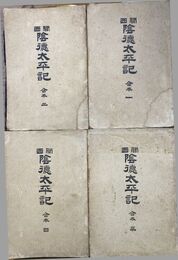 關國
陰德太平記
合本 一
關國
陰德太平記
合本 二
關國
陰德太平記
合本 三
關國
陰德太平記
合本 四